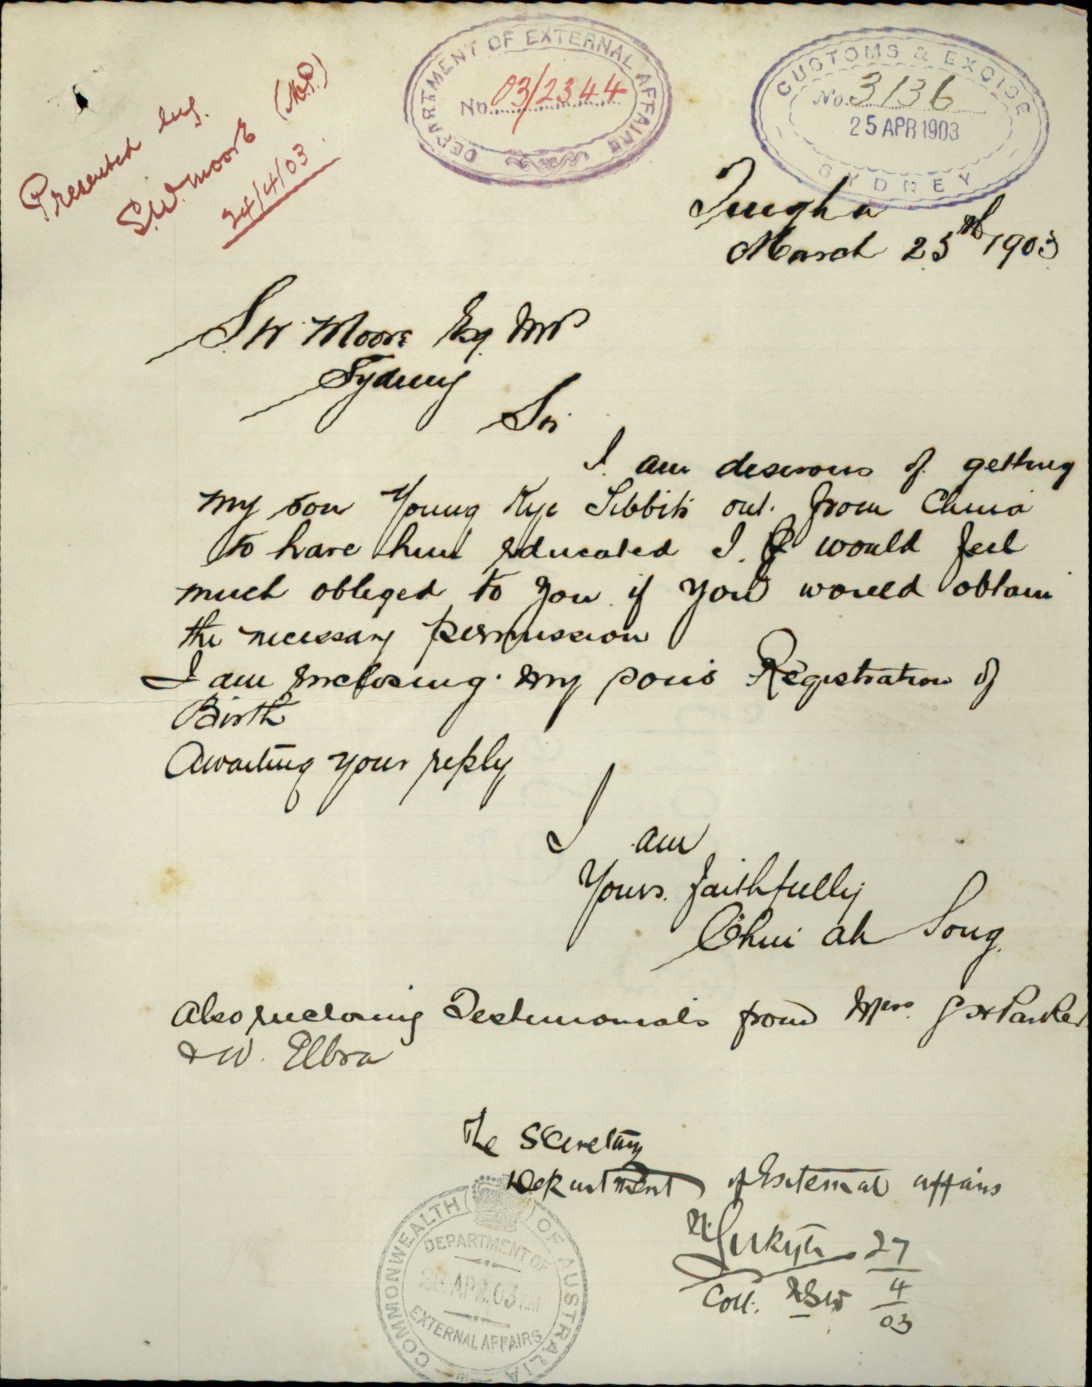 Presented by
S.W. Moore (M.P.)
24/4/03.
DEPARTMENT OF EXTERNAL AFFAIRS
No. 03/2344
CUSTOMS & EXCISE
No. 3136
25 APR 1903
SYDNEY
Tingha
March 25th 1903
S.W. Moore Esq MP
Sydney
Sir
I am desirous of getting
my son Young Kye Sibbits out from China
to have him educated I would feel
much obliged to you if you would obtain
the necessary permission
I am enclosing my son's Registration of
Birth
Awaiting your reply
I am
Yours faithfully
Chui ah Song.
also enclosing Testimonials from Mess. G H Parker
& W. Elbra
The Secretary
Department of External affairs
Coll. NSW
27
4
03
COMMONWEALTH OF AUSTRALIA
DEPARTMENT OF
APR. 03
EXTERNAL AFFAIRS